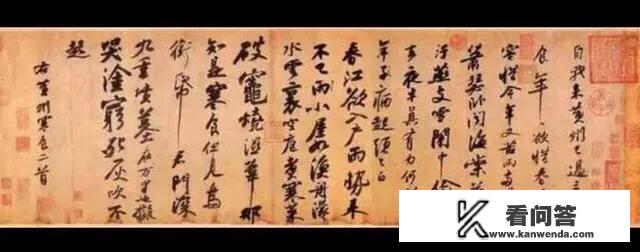 自我來黃州已過三
食年〻欲惜春
容惜今年又苦雨兩
蕭瑟卧聞海棠花
泥汙燕支雪闇中偷
負去夜半真有力何
年子病起頭已白
春江欲入戶雨勢来
不已雨小屋如漁舟濛〻
水雲裏空庖煮寒菜
破竈燒濕葦那
知是寒食但見烏
銜帋君門深
九重墳墓在万里也擬
哭塗窮死灰吹不
起
右黄州寒食二首
看问答
www.kanwenda.com